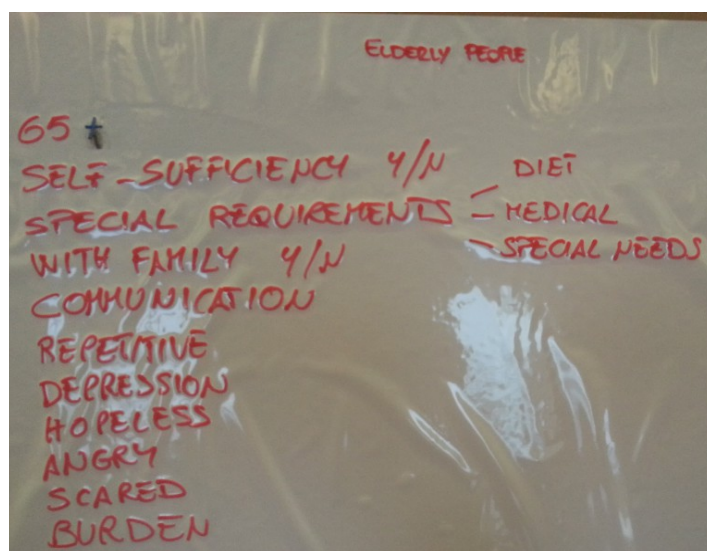 ELDERLY PEOPLE
65 +
SELF-SUFFICIENCY Y/N
SPECIAL REQUIREMENTS - DIET
- MEDICAL
- SPECIAL NEEDS
WITH FAMILY Y/N
COMMUNICATION
REPETITIVE
DEPRESSION
HOPELESS
ANGRY
SCARED
BURDEN